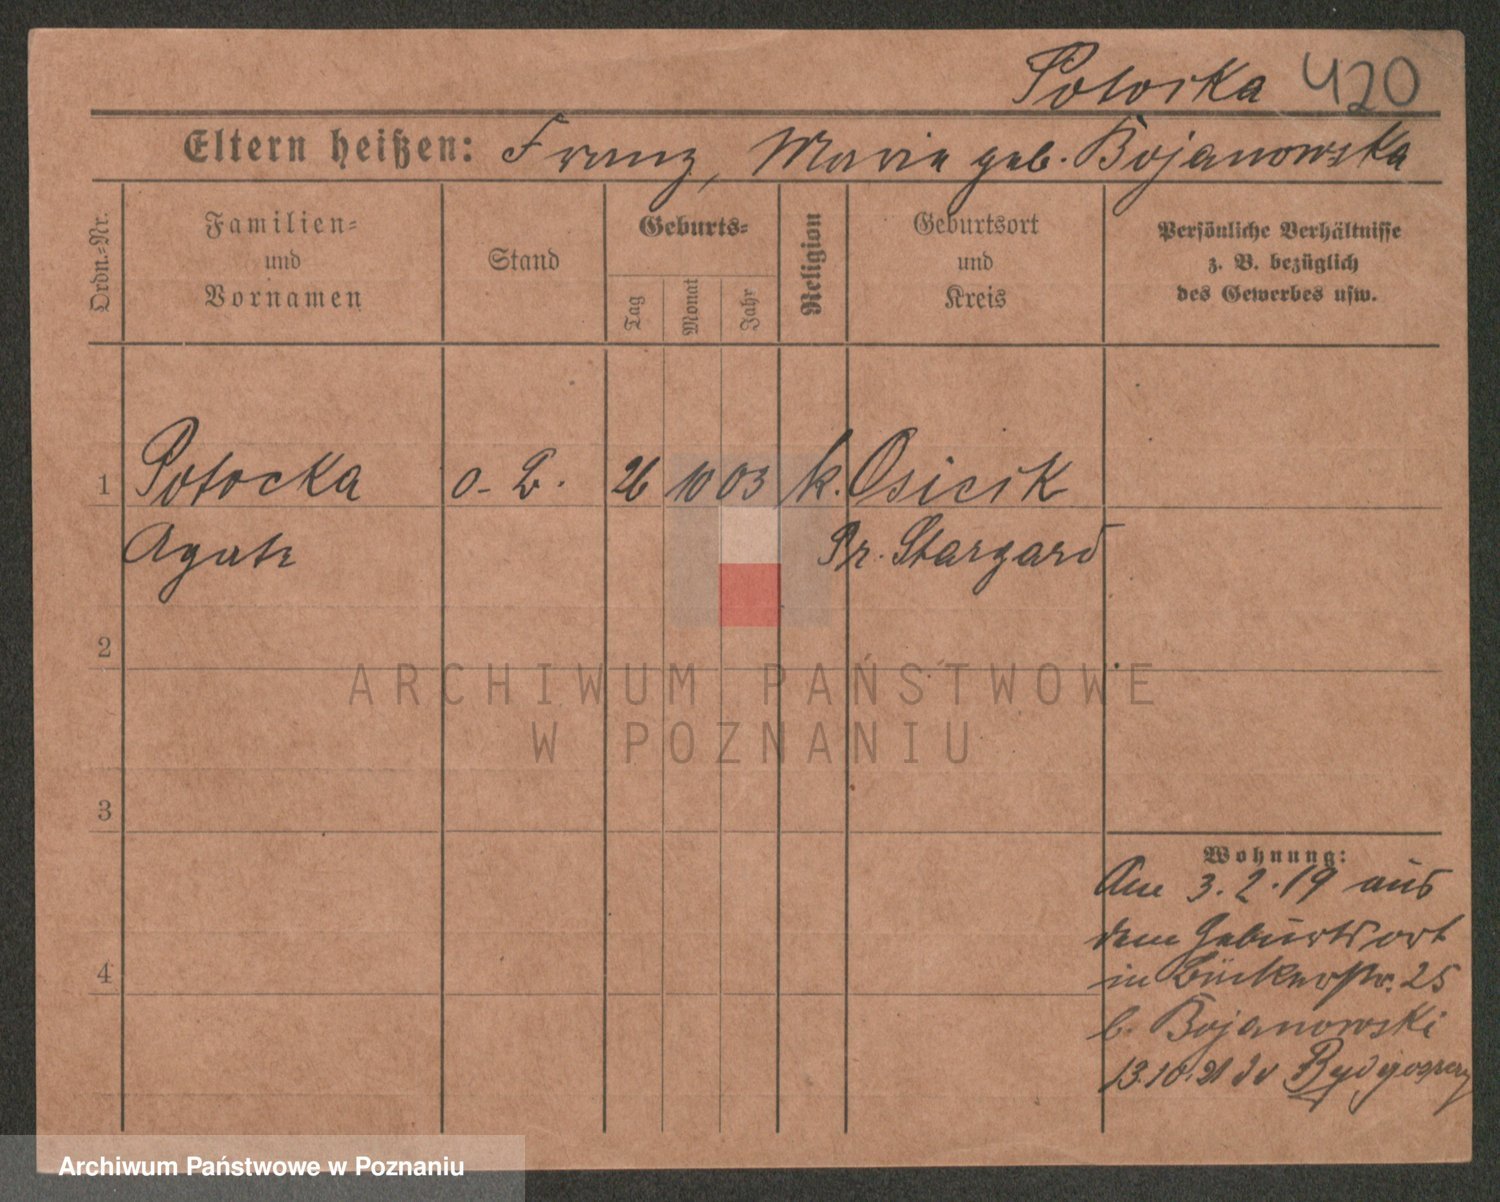 Potocka 420
Eltern heißen: Franz, Marie geb. Bojanowska
Ordn.-Nr.
Familien-
und
Vornamen
Stand
Geburts-
Tag
Monat
Jahr
Religion
Geburtsort
und
Kreis
Persönliche Verhältnisse
z. B. bezüglich
des Gewerbes usw.
1 Potocka o. B. 26 10 03 k. Osiecik
Agate
Pr. Stargard
2
3
4
Wohnung:
Am 3.2.19 aus
dem Geburtsort
in 25
b. Bojanowski
13.10.21 Bydgoszcz
ARCHIWUM PAŃSTWOWE
W POZNANIU
Archiwum Państwowe w Poznaniu